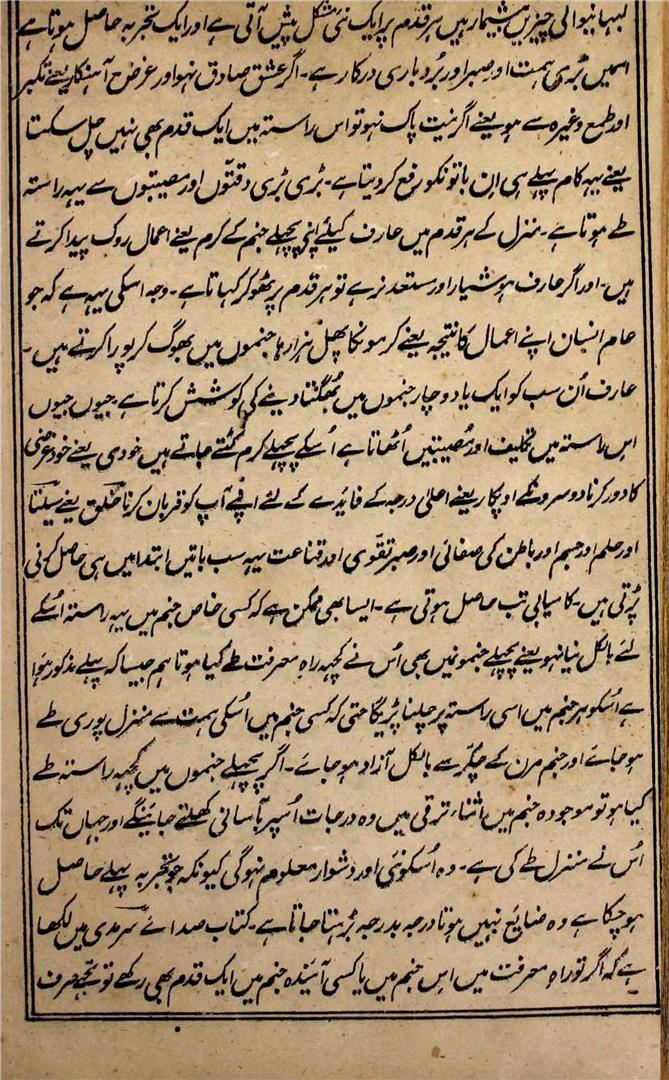 لبہانیوالی چیزیں بیشمار ہیں ہر قدم پر ایک نئی مشکل پیش آتی ہے اور ایک تجربہ حاصل ہوتا ہے
اسمیں بڑی ہمت اور صبر اور بردباری درکار ہے۔ اگر عشق صادق نہو اور غرض آہنکار یعنے تکبر
اور طمع وغیرہ سے ہو یعنے اگر نیت پاک نہو تو اس راستہ میں ایک قدم بھی نہیں چل سکتا
یعنے یہہ کام پہلے ہی ان باتونکو رفع کر دیتا ہے۔ بڑی بڑی دقتّوں اور مصیبتوں سے یہہ راستہ
طے ہوتا ہے۔ منزل کے ہر قدم میں عارف کیلئے اپنی پچھلے جنم کے کرم یعنے اعمال روک پیدا کرتے
ہیں۔ اور اگر عارف ہوشیار اور مستعد نرہے تو ہر قدم پر ٹھوکر کہاتا ہے۔ وجہ اسکی یہہ ہے کہ جو
عام انسان اپنے اعمال کا نتیجہ یعنے کرمونکا پھل ہزارہا جنموں میں بھوگ کر پورا کرتے ہیں۔
عارف اُن سب کو ایک یا دو چار جنموں میں بُھگتا دینے کی کوشش کرتا ہے۔ جیوں جیوں
اس راستہ میں تکلیف اور مُصیبتیں اُٹھاتا ہے اُسکے پچھلے کرم کٹتے جاتے ہیں خودی یعنے خود غرضی
کا دور کرنا دوسرونکے اوپکار یعنے اعلیٰ درجہ کے فایدے کے لئے اپنے آپ کو قربان کرنا خلق یعنے سیلتا
اور حلم اور جسم اور باطن کی صفائی اور صبر تقوی اور قناعت یہہ سب باتیں ابتدا میں ہی حاصل کرنی
پڑتی ہیں۔ کامیابی تب حاصل ہوتی ہے۔ ایسا بھی ممکن ہے کہ کسی خاص جنم میں یہہ راستہ اُسکے
لئے بالکل نیا نہو یعنے پچھلے جنمونمیں بھی اُس نے کچہہ راہ معرفت طے کیا ہو تاہم جیسا کہ پہلے مذکور ہوا
ہے اُسکو ہر جنم میں اسی راستہ پر چلنا پڑیگا حتی کہ کسی جنم میں اُسکی ہمت سے منزل پوری طے
ہو جائے اور جنم مرن کے چکّر سے بالکل آزاد ہو جائے۔ اگر پچھلے جنموں میں کچہہ راستہ طے
کیا ہو تو موجودہ جنم میں اثناء ترقی میں وہ درجات اُسپر بآسانی کھلتے جائینگے اور جہاں تک
اُس نے منزل طے کی ہے۔ وہ اُسکو نئی اور دشوار معلوم نہوگی کیونکہ جو تجربہ پہلے حاصل
ہو چکا ہے وہ ضایع نہیں ہوتا درجہ بدرجہ بڑہتا جاتا ہے۔ کتاب صدائے سرمدی میں لکھا
ہے کہ اگر تو راہ معرفت میں اس جنم میں یا کسی آئندہ جنم میں ایک قدم بھی رکھے تو تجھے صرف